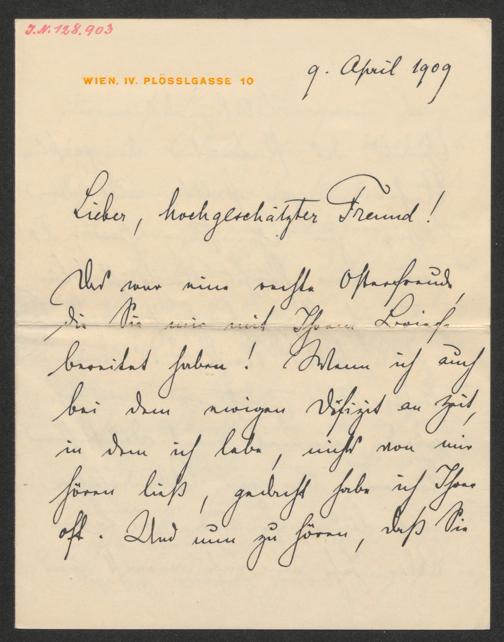 J.N. 128.903
WIEN, IV. PLÖSSLGASSE 10
9. April 1909
Lieber, hochgeschätzter Freund!
Das war eine rechte Osterfreude,
die Sie mir mit Ihrem Briefe
bereitet haben! Wenn ich auch
bei dem ewigen Defizit an Zeit,
in dem ich lebe, nichts von mir
hören ließ, gedacht habe ich Ihrer
oft. Und nun zu hören, daß Sie